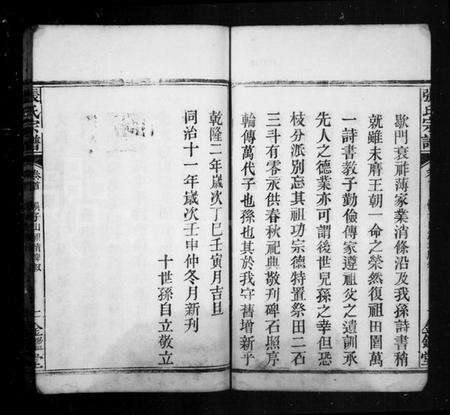 歇門衰祚薄家業消條沿及我孫詩書稍
就雖未膺王朝一命之榮然復祖田園萬
一詩書教子勤儉傳家遵祖父之遺訓承
先人之德業亦可謂後世兒孫之幸但恐
枝分派別忘其祖功宗德特置祭田二石
三斗有零永供春秋祀典敬刋碑石照序
輪傳萬代子也孫也其於我守舊增新乎
乾隆二年嵗次丁巳壬寅月吉旦
同治十一年嵗次壬申仲冬月新刋
十世孫自立敬立
張氏宗譜
卷首